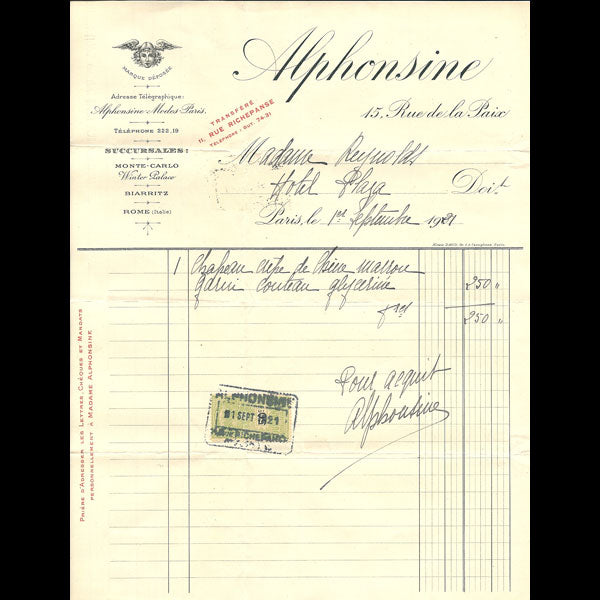 MARQUE DÉPOSÉE
Adresse Télégraphique:
Alphonsine-Modes-Paris.
TÉLÉPHONE 252.19
SUCCURSALES:
MONTE-CARLO
Winter Palace
BIARRITZ
ROME (Italie)
Alphonsine
15, Rue de la Paix
TRANSFÉRÉ
11, RUE RICHEPANSE
TÉLÉPHONE: GUT. 74-21
Madame Reynolds
Hotel Plaza Doit
Paris, le 1er Septembre 1921
1 Chapeau crêpe de Chine marron
garni couteau glycérine 250 "
frcs 250 "
Pour acquit
Alphonsine
ALPHONSINE
1 SEPT 1921
PRIÈRE D'ADRESSER LES LETTRES, CHÈQUES ET MANDATS
PERSONNELLEMENT À MADAME ALPHONSINE